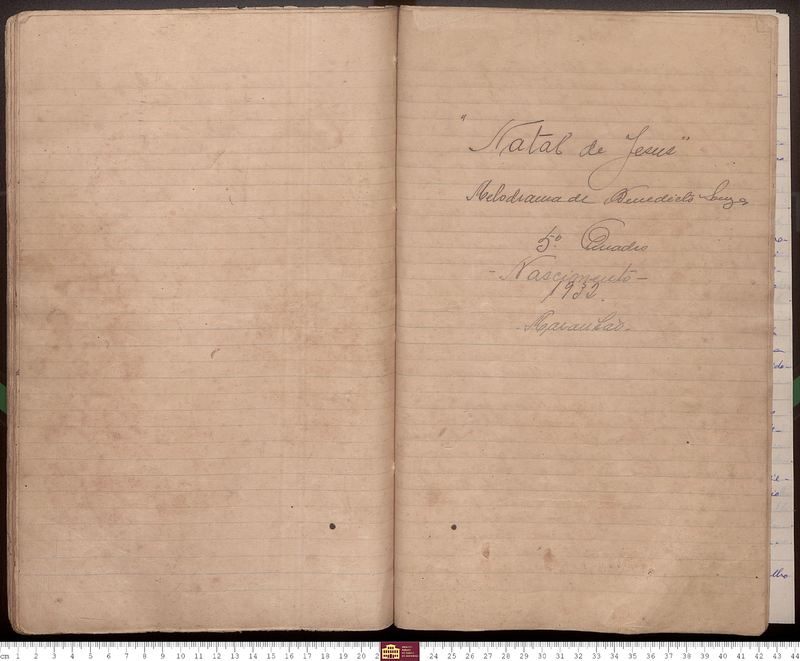 "Natal de Jesus"
Melodrama de Benedicto Souza
5º Quadro
- Nascimento -
1932.
- Maranhão -
cm 1 2 3 4 5 6 7 8 9 10 11 12 13 14 15 16 17 18 19 20 2 24 25 26 27 28 29 30 31 32 33 34 35 36 37 38 39 40 41 42 43 44